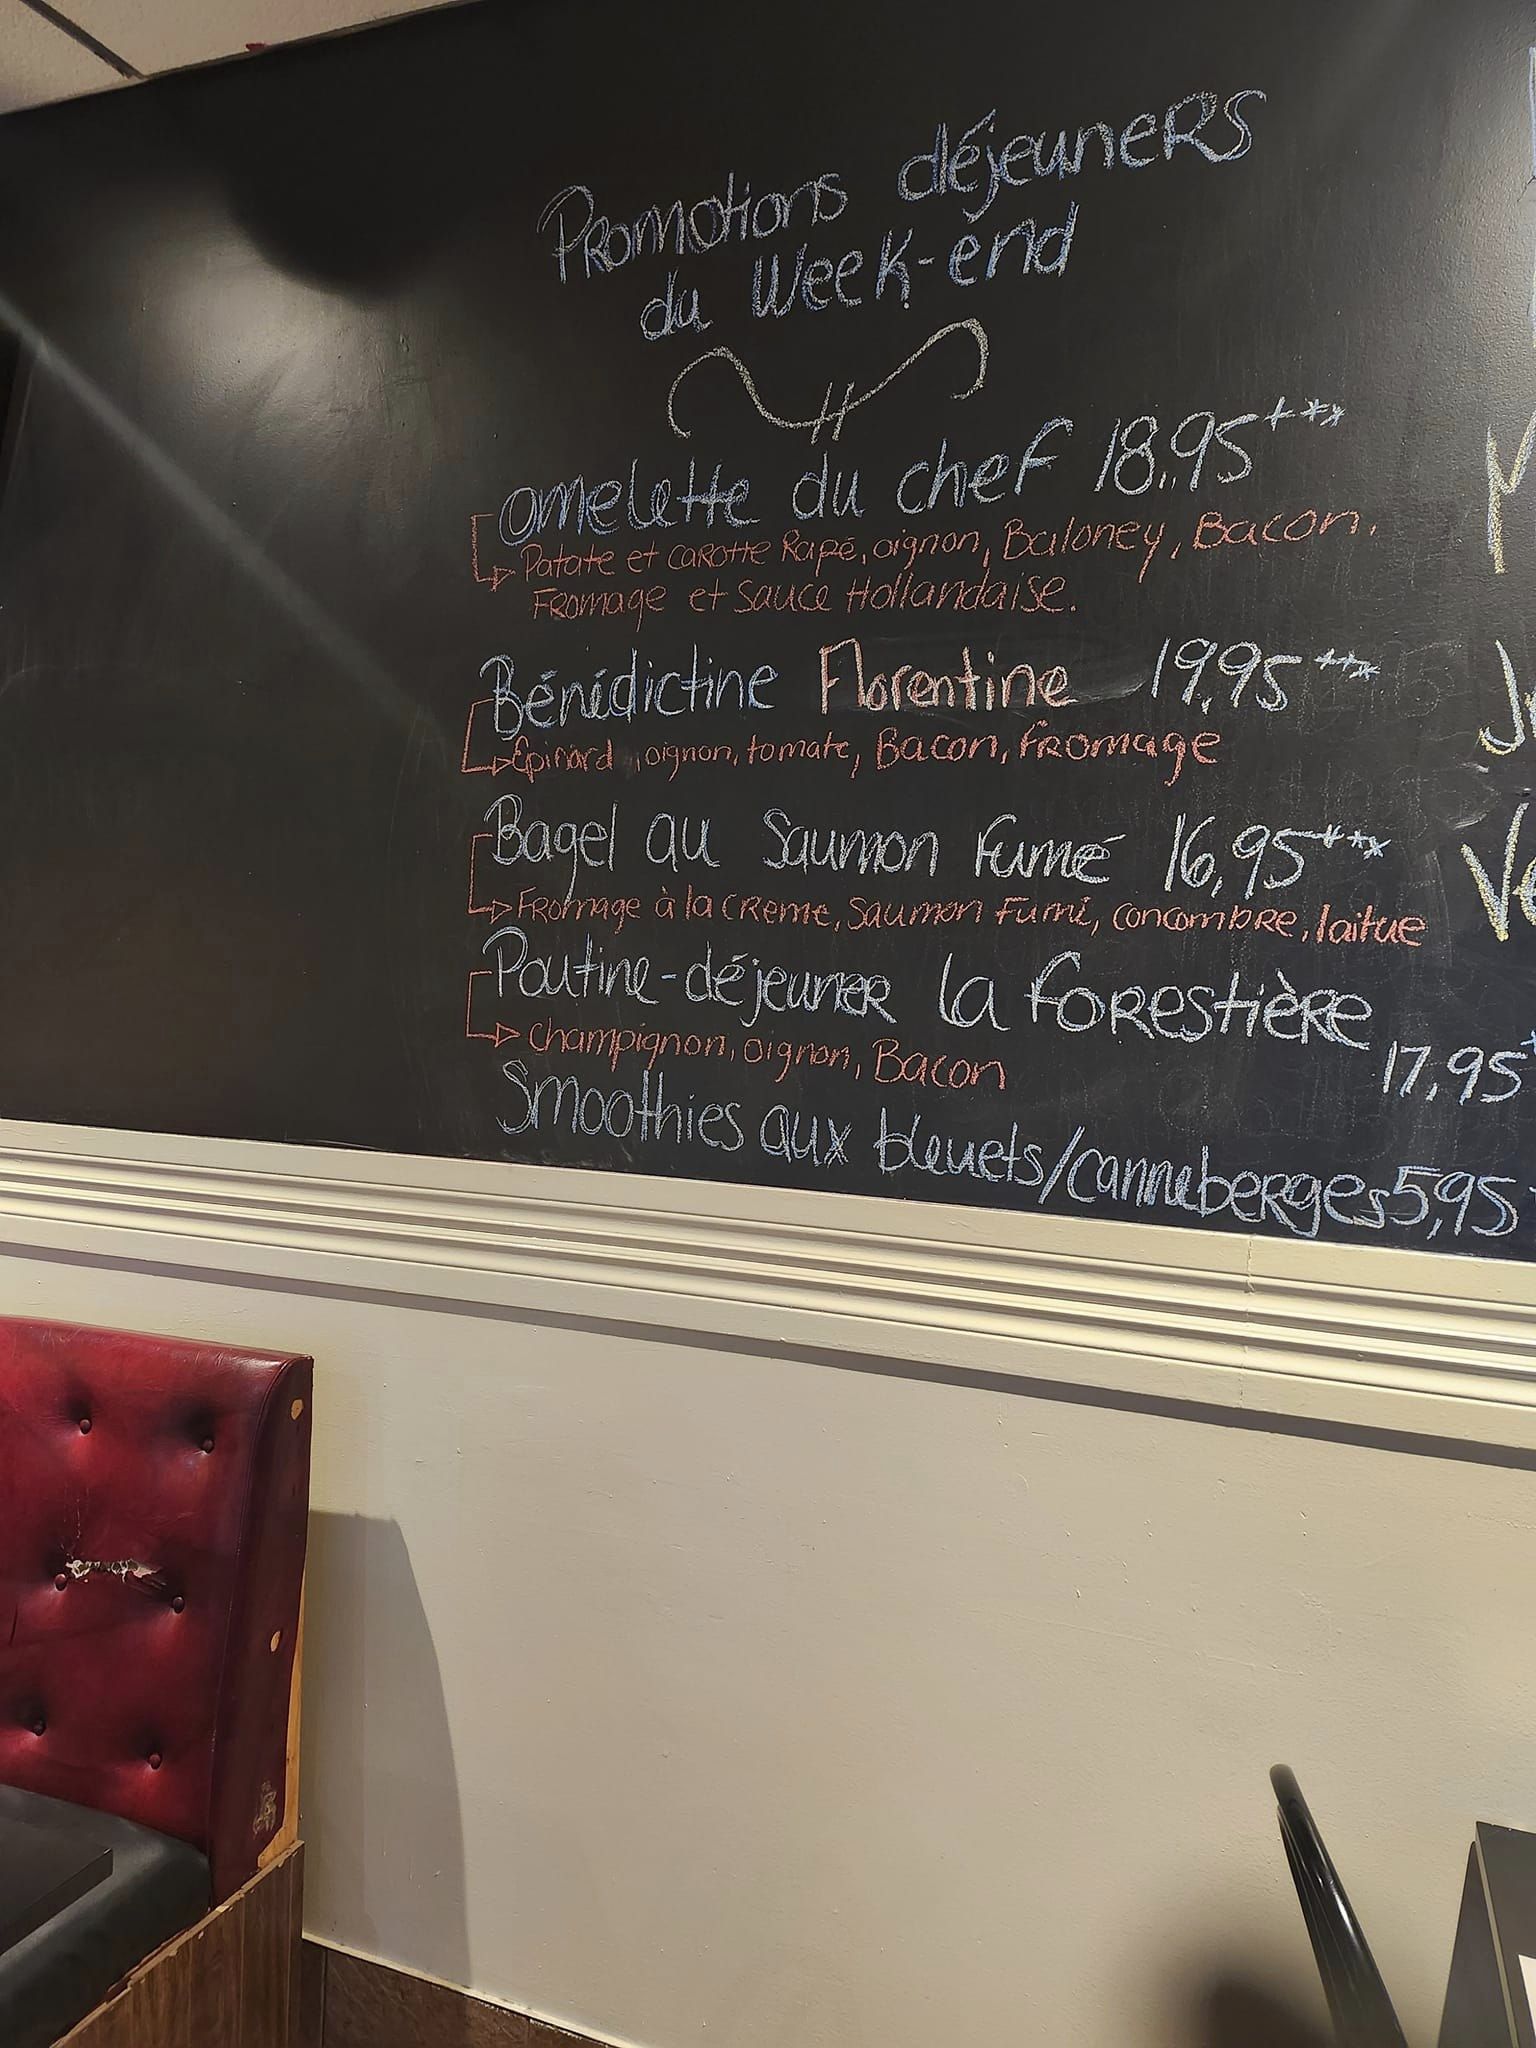 Promotions déjeuners
du Week-end
Omelette du chef 18,95+**
Patate et carotte Rapé, oignon, Baloney, Bacon,
Fromage et sauce Hollandaise.
Bénédictine Florentine 19,95+**
Épinard, oignon, tomate, Bacon, Fromage
Bagel au Saumon Fumé 16,95+**
Fromage à la creme, Saumon Fumé, concombre, laitue
Poutine-déjeuner la forestière
17,95
champignon, oignon, Bacon
Smoothies aux bleuets/canneberges 5,95